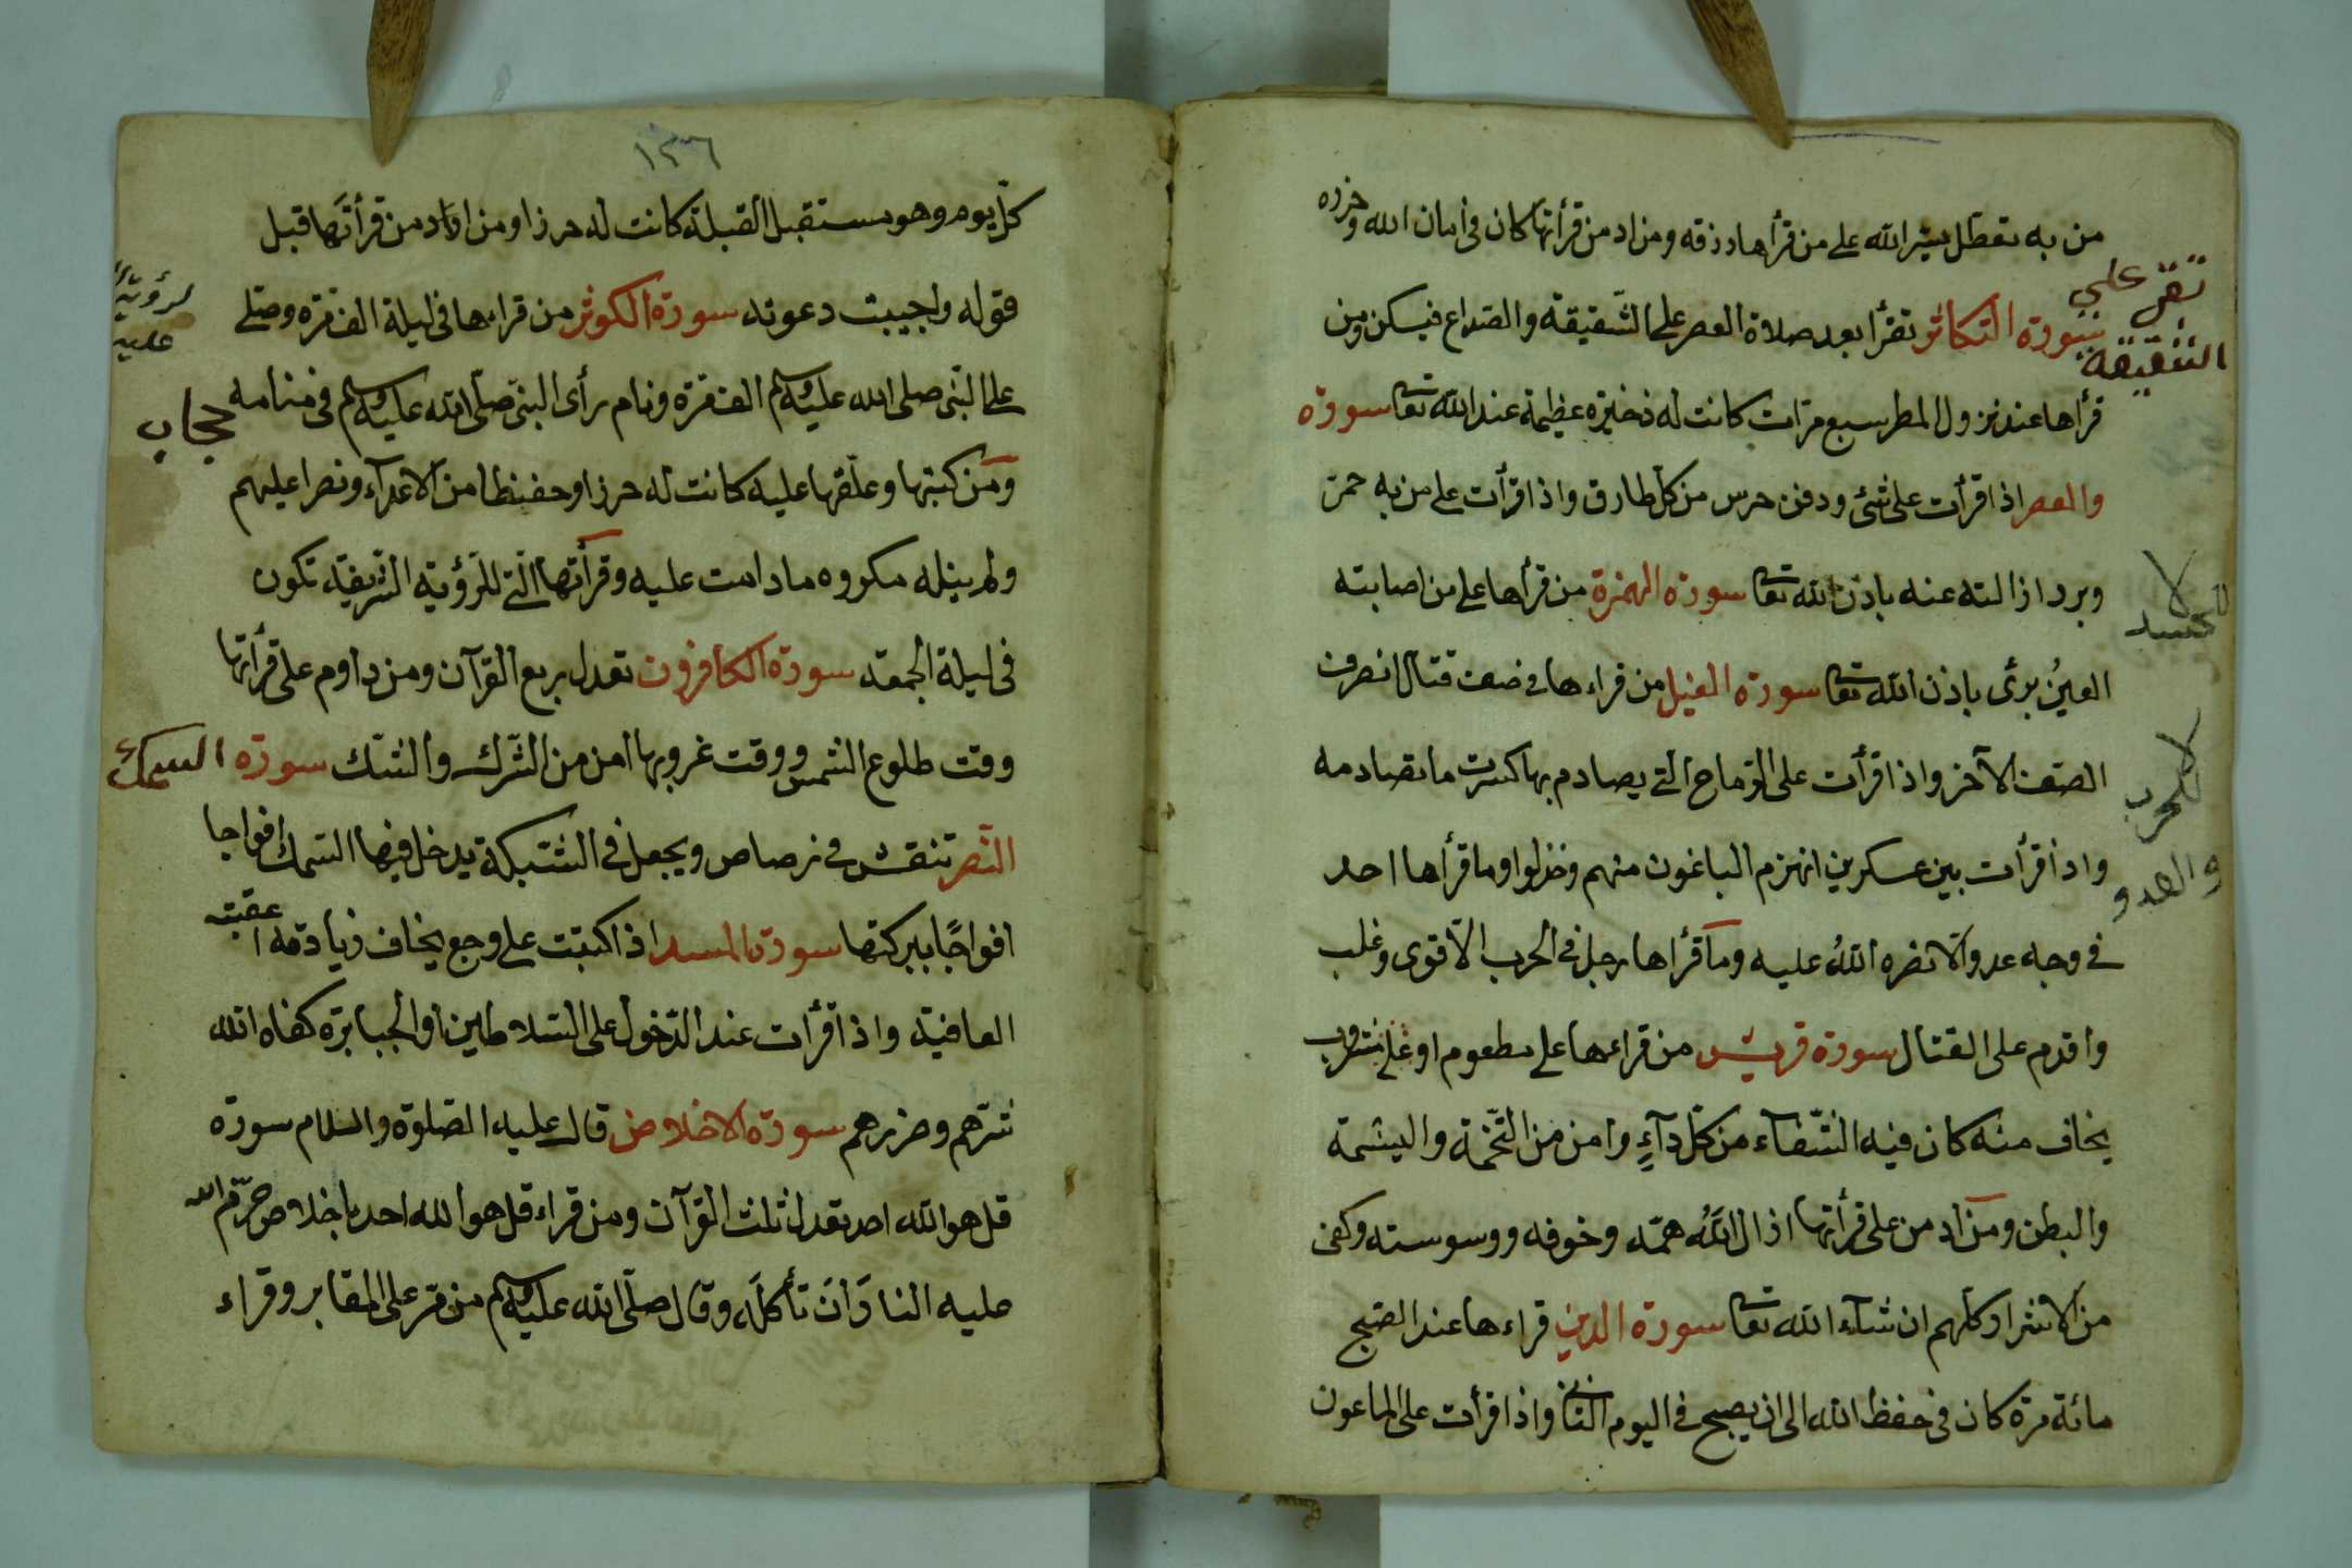 من به تعطل يسر الله على من قرأها رزقه ومن ادمن قرأتها كان فى امان الله وحرزه
تقرء على
الشقيقة
سورة التكاثر تقرأ بعد صلاة العصر على الشقيقة والصداع فيسكن ومن
قرأها عند نزول المطر سبع مرات كانت له ذخيرة عظيمة عند الله تعا سورة
والعصر اذا قرأت على شئ ودفن حرس من كل طارق واذا قرأت على من به حمى
وبرد ازالته عنه باذن الله تعا سورة الهمزة من قرأها على من اصابته
العين برئ باذن الله تعا سورة الفيل من قراءها فى صف قتال انصرف
الصف الآخر واذا قرأت على الرماح التى يصادم بها كسرت ما تصادمه
للحرب
والعدو
واذا قرأت بين عسكرين انهزم الباغون منهم وخذلوا وما قرأها احد
فى وجه عدو الا نصره الله عليه وما قرأها رجل فى الحرب الا قوى وغلب
واقدم على القتال سورة قريش من قراءها على مطعوم او على مشروب
يخاف منه كان فيه الشفآء من كل دآء وامن من التخمة والبشمة
والبطن ومن ادمن على قرأتها ازال الله همه وخوفه ووسوسته وكفى
من الاشرار كلهم ان شآء الله تعا سورة الدين قراءها عند الصبح
مائة مرة كان فى حفظ الله الى ان يصبح فى اليوم الثانى واذا قرأت على الماعون
١٣٦
كل يوم وهو مستقبل القبلة كانت له حرزا ومن ادمن قرأتها قبل
لرؤية
عليه
قوله واجيبت دعوته سورة الكوثر من قراءها فى ليلة الف مرة وصلى
على النبى صلى الله عليه وسلم الف مرة ونام رأى النبى صلى الله عليه وسلم فى منامه
حجاب
ومن كتبها وعلقها عليه كانت له حرزا وحفظا من الاعدآء ونصرا عليهم
ولم ينله مكروه ما دامت عليه وقرأتها التى للرؤية الشريفة تكون
فى ليلة الجمعة سورة الكافرون تعدل بربع القرآن ومن داوم على قرأتها
وقت طلوع الشمس ووقت غروبها امن من الشرك والشك سورة
السمك
النصر تنقش فى رصاص ويجعل فى الشبكة يدخل فيها السمك افواجا
افواجًا ببركتها سورة المسد اذا كتبت على وجع يخاف زيادته اعقبته
العافية واذا قرأت عند الدخول على السلاطين او الجبابرة كفاه الله
شرهم وضررهم سورة الاخلاص قال عليه الصلوة والسلام سورة
قل هو الله احد تعدل ثلث القرآن ومن قراء قل هو الله احد باخلاص حرم الله
عليه النار ان تأكله وقال صلى الله عليه وسلم من مر على المقابر وقراء